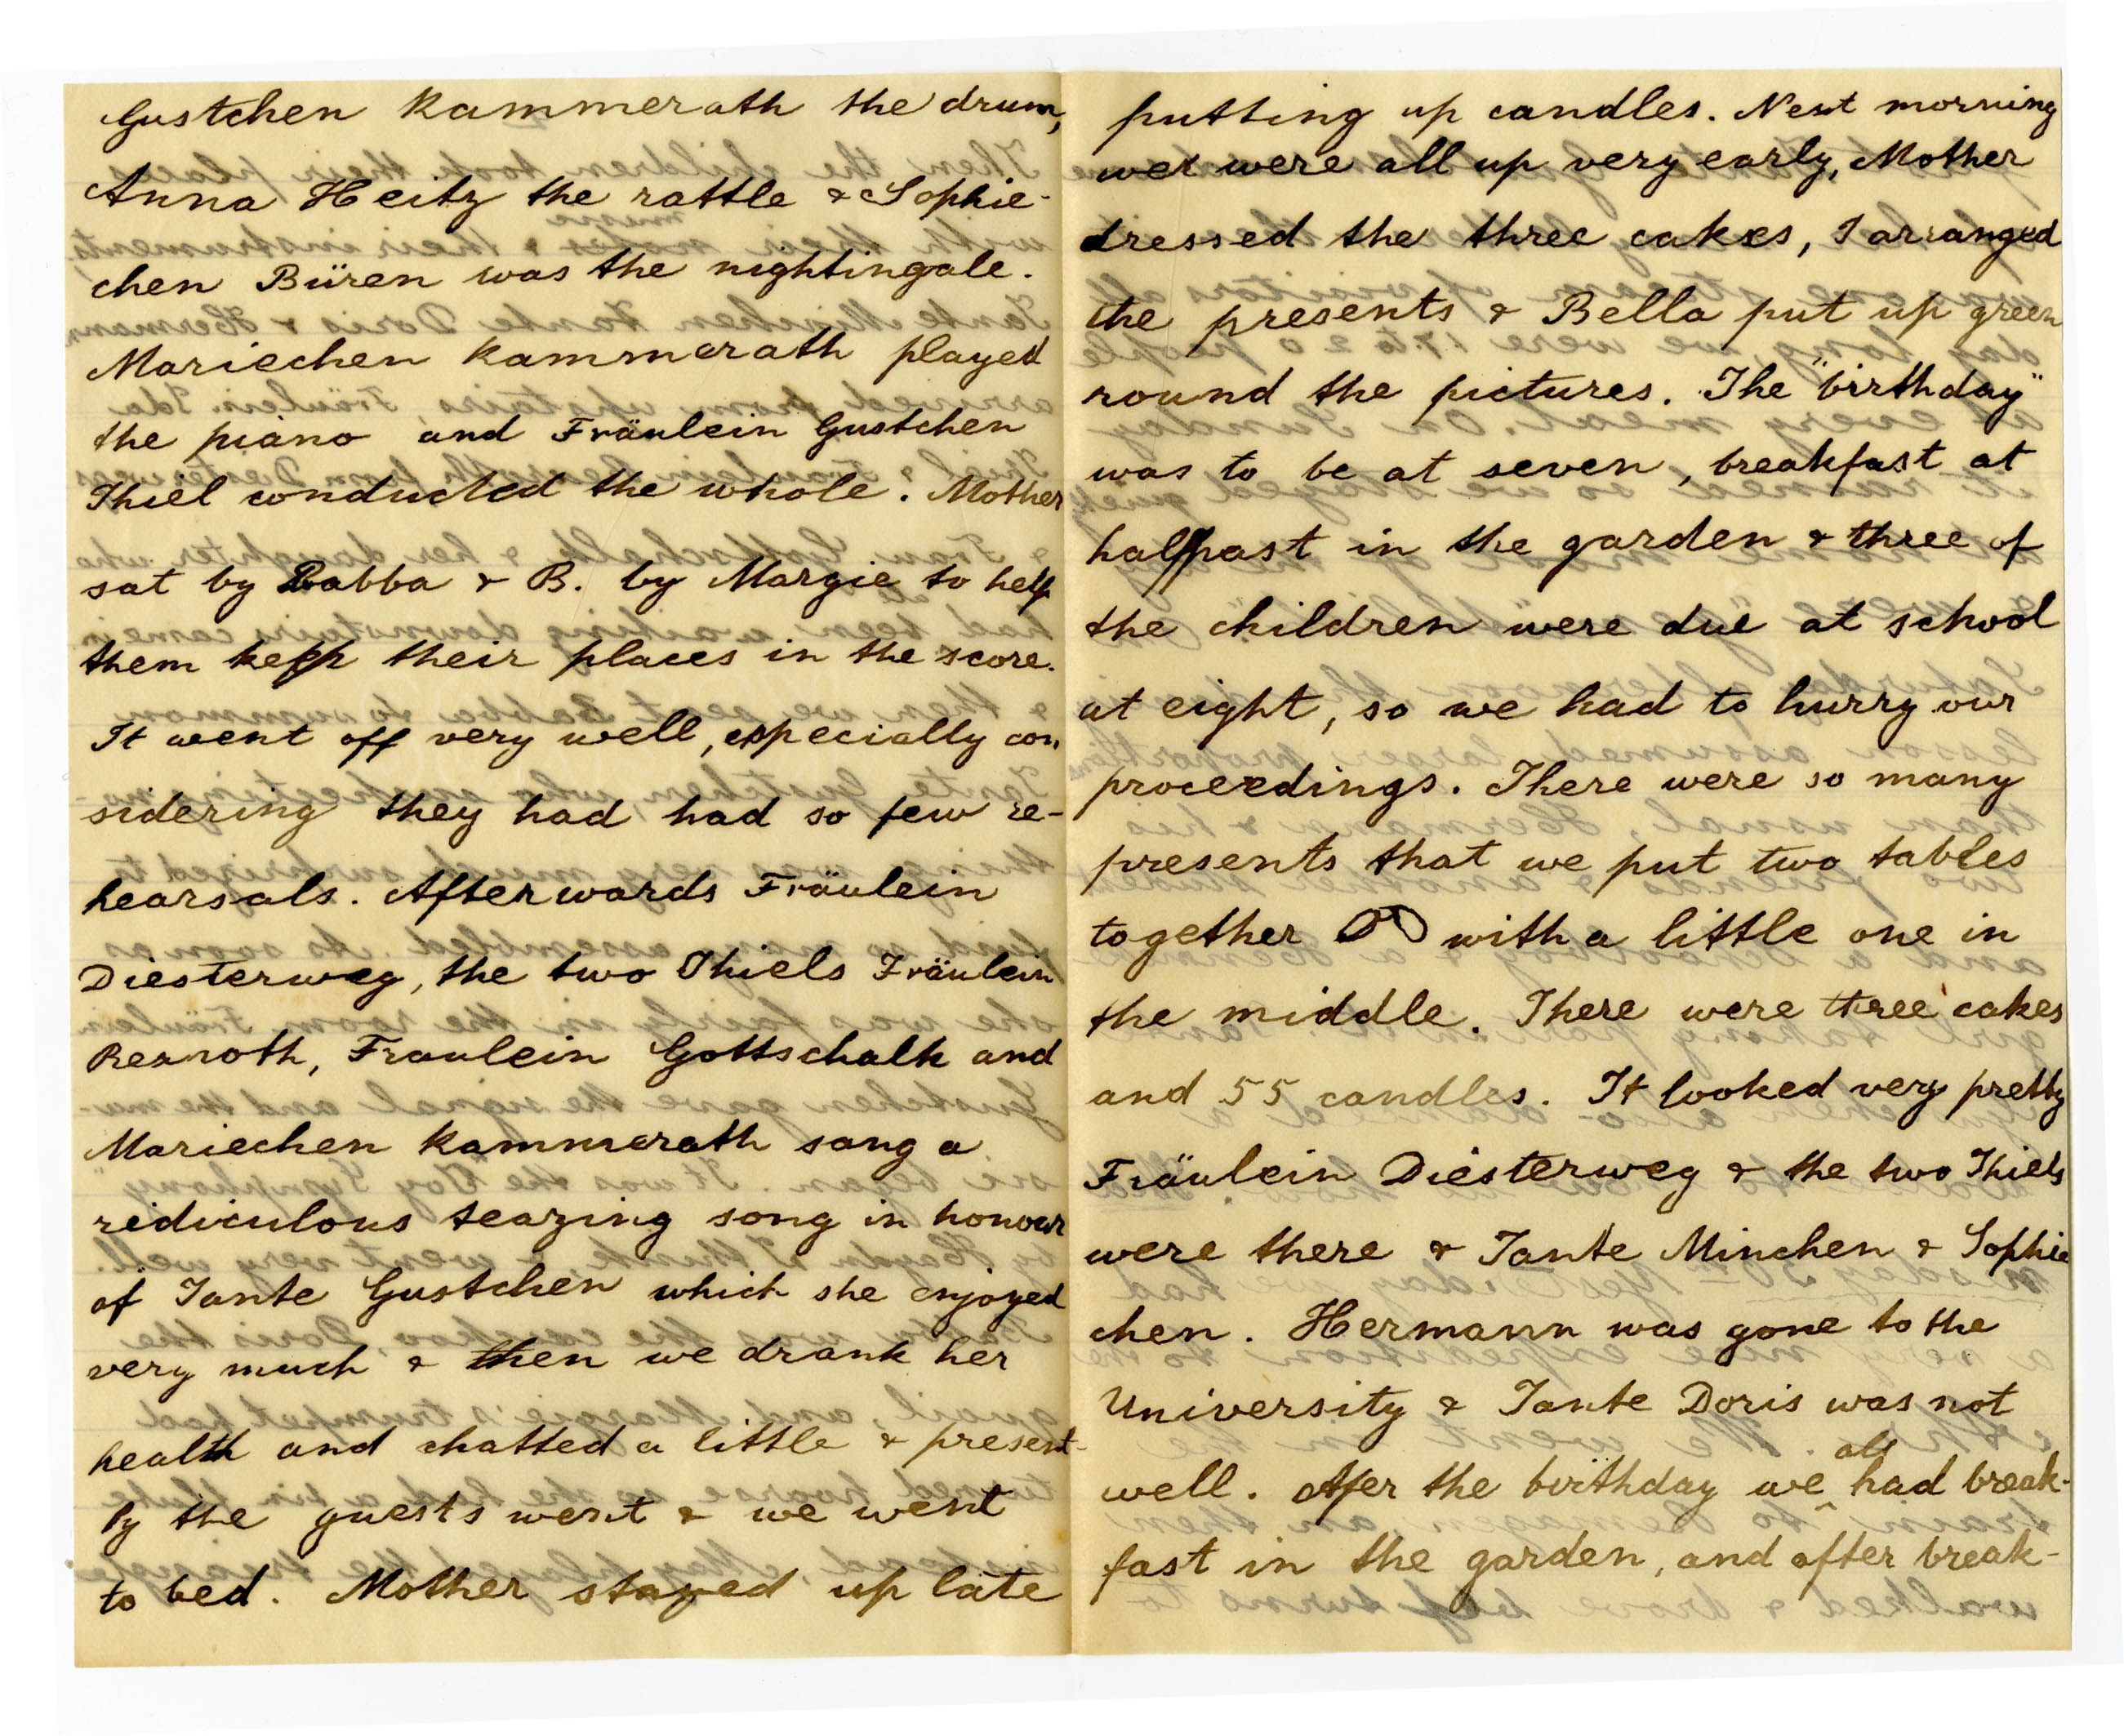 Gustchen Kammerath the drum,
Anna Heitz the rattle & Sophie-
chen Büren was the nightingale.
Mariechen Kammerath played
the piano and Fräulein Gustchen
Thiel conducted the whole. Mother
sat by Babba & B. by Margie to help
them keep their places in the score.
It went off very well, especially con
sidering they had had so few re-
hearsals. Afterwards Fräulein
Diesterweg, the two Thiels Fräulein
Rexroth, Fraulein Gottschalk and
Mariechen Kammerath sang a
rediculous teazing song in honour
of Tante Gustchen which she enjoyed
very much & then we drank her
health and chatted a little & present-
ly the guests went & we went
to bed. Mother stayed up late
putting up candles. Next morning
we were all up very early, Mother
dressed the three cakes, I arranged
the presents & Bella put up green
round the pictures. The "birthday"
was to be at seven, breakfast at
halfpast in the garden & three of
the children were due at school
at eight, so we had to hurry our
proceedings. There were so many
presents that we put two tables
together with a little one in
the middle. There were three cakes
and 55 candles. It looked very pretty
Fräulein Diesterweg & the two Thiels
were there & Tante Minchen & Sophie
chen. Hermann was gone to the
University & Tante Doris was not
well. Afer the birthday we all had break-
fast in the garden, and after break-